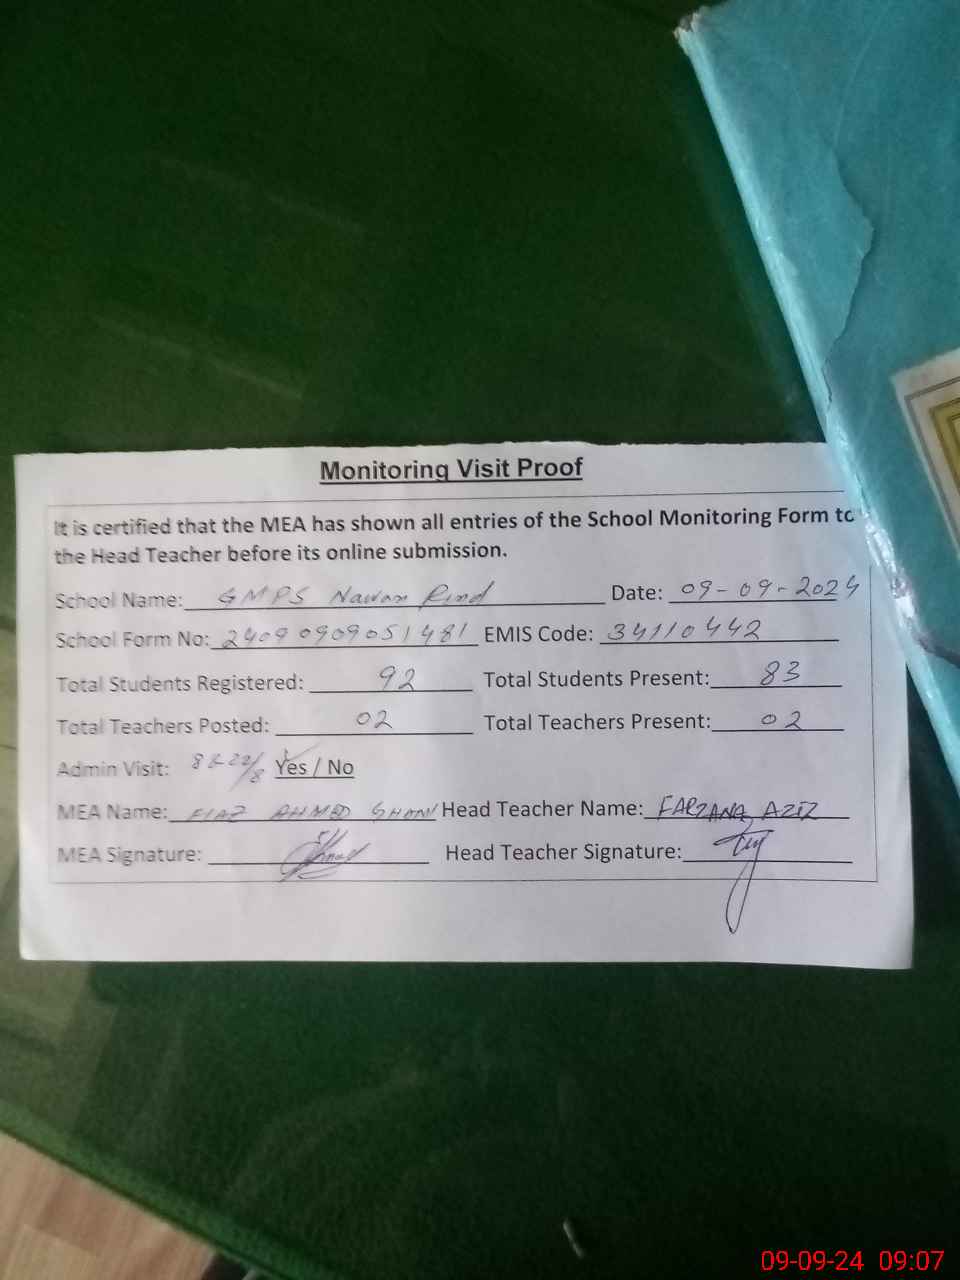 Monitoring Visit Proof
It is certified that the MEA has shown all entries of the School Monitoring Form to
the Head Teacher before its online submission.
School Name: GMPS Nawan Rind Date: 09-09-2024
School Form No: 24090909051481 EMIS Code: 34110442
Total Students Registered: 92 Total Students Present: 83
Total Teachers Posted: 02 Total Teachers Present: 02
Admin Visit: 8 & 22/8 Yes / No
MEA Name: FIAZ AHMED Head Teacher Name: FARZANA AZIZ
MEA Signature: Head Teacher Signature:
09-09-24 09:07